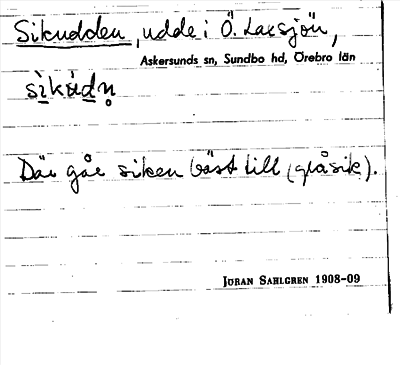 Sikudden, udde i Ö. Laxsjön,
Askersunds sn, Sundbo hd, Örebro län
Där går siken bäst till (gråsik).
JÖRAN SAHLGREN 1908-09